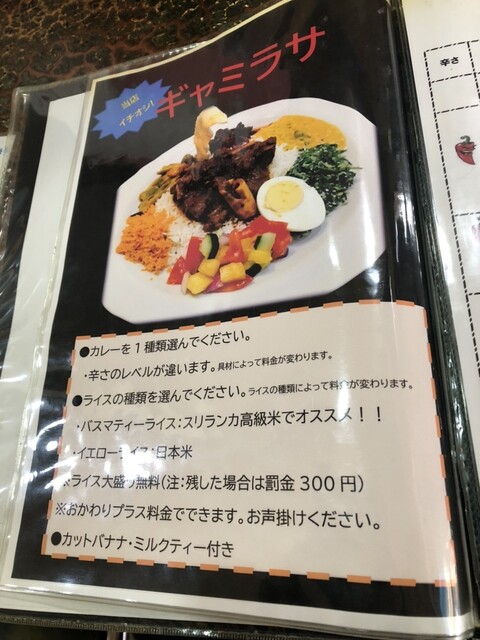 当店
イチオシ!
ギャミラサ
辛さ
●カレーを1種類選んでください。
・辛さのレベルが違います。具材によって料金が変わります。
●ライスの種類を選んでください。ライスの種類によって料金が変わります。
・バスマティーライス:スリランカ高級米でオススメ!!
・イエローライス:日本米
※ライス大盛り無料(注:残した場合は罰金300円)
※おかわりプラス料金でできます。お声掛けください。
●カットバナナ・ミルクティー付き